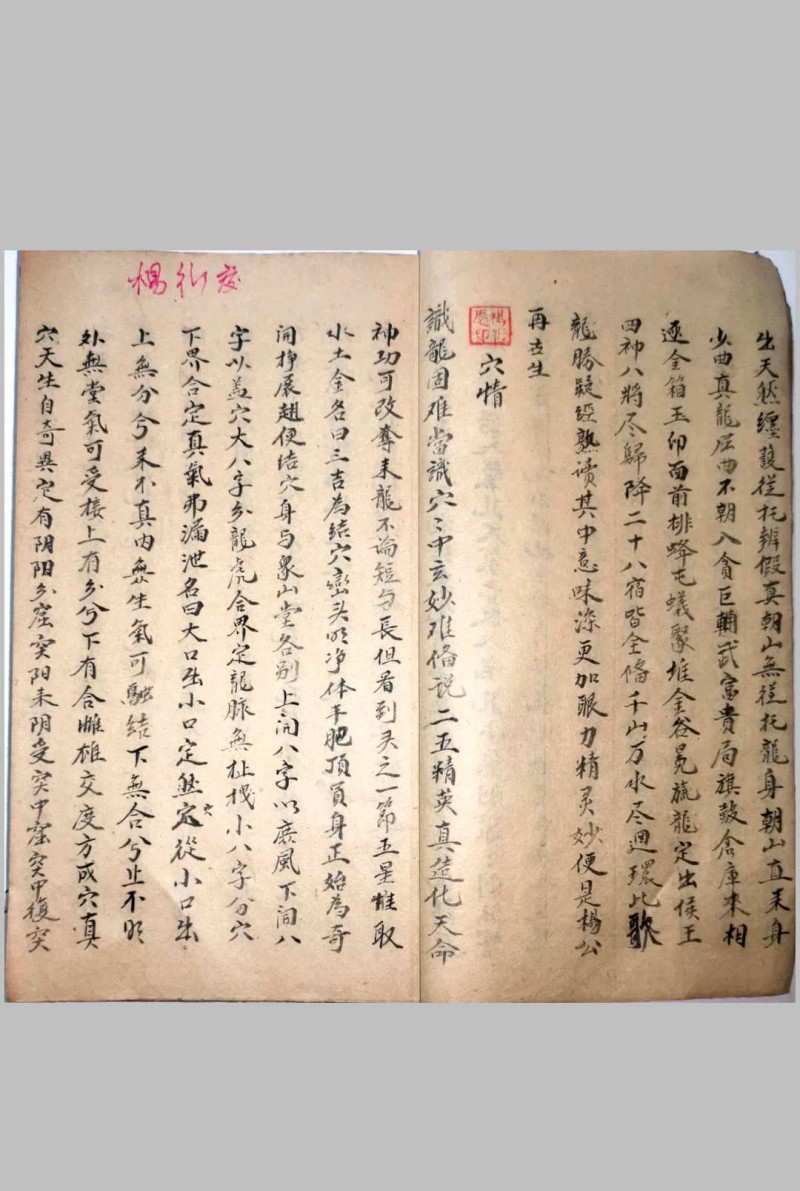 出天然纏護從托辨假真朝山無從托龍身朝山直来身
少曲真龍屈曲不朝入貪巨輔武富貴局旗鼓倉庫来相
逐金箱玉印面前排蜂屯蟻聚堆金谷冕旒龍定出侯王
四神八將尽歸降二十八宿皆全俻千山万水尽迴環此歌
龍勝疑經熟读其中意味深更加眼力精灵妙便是楊公
再去生
穴情
識龍固难當識穴〻中玄妙难俻说二五精英真造化天命
神功可改奪来龍不論短与長但看到头之一節五星惟取
水土金名曰三吉為結穴巒头明净体平肥頂員身正始為奇
開挣展翅便結穴身与衆山堂各别上開八字以庶風下開八
字以盖穴大八字分龍虎合界定龍脉無扯拽小八字分穴
下界合定真氣弗漏泄名曰大口出小口定然穴從小口出
上無分兮来不真内無生氣可融結下無合兮止不明
外無堂氣可受接上有分兮下有合雌雄交度方成穴真
穴天生自奇異定有阴阳分窟突阳来阴受突中窟突中復突
楊